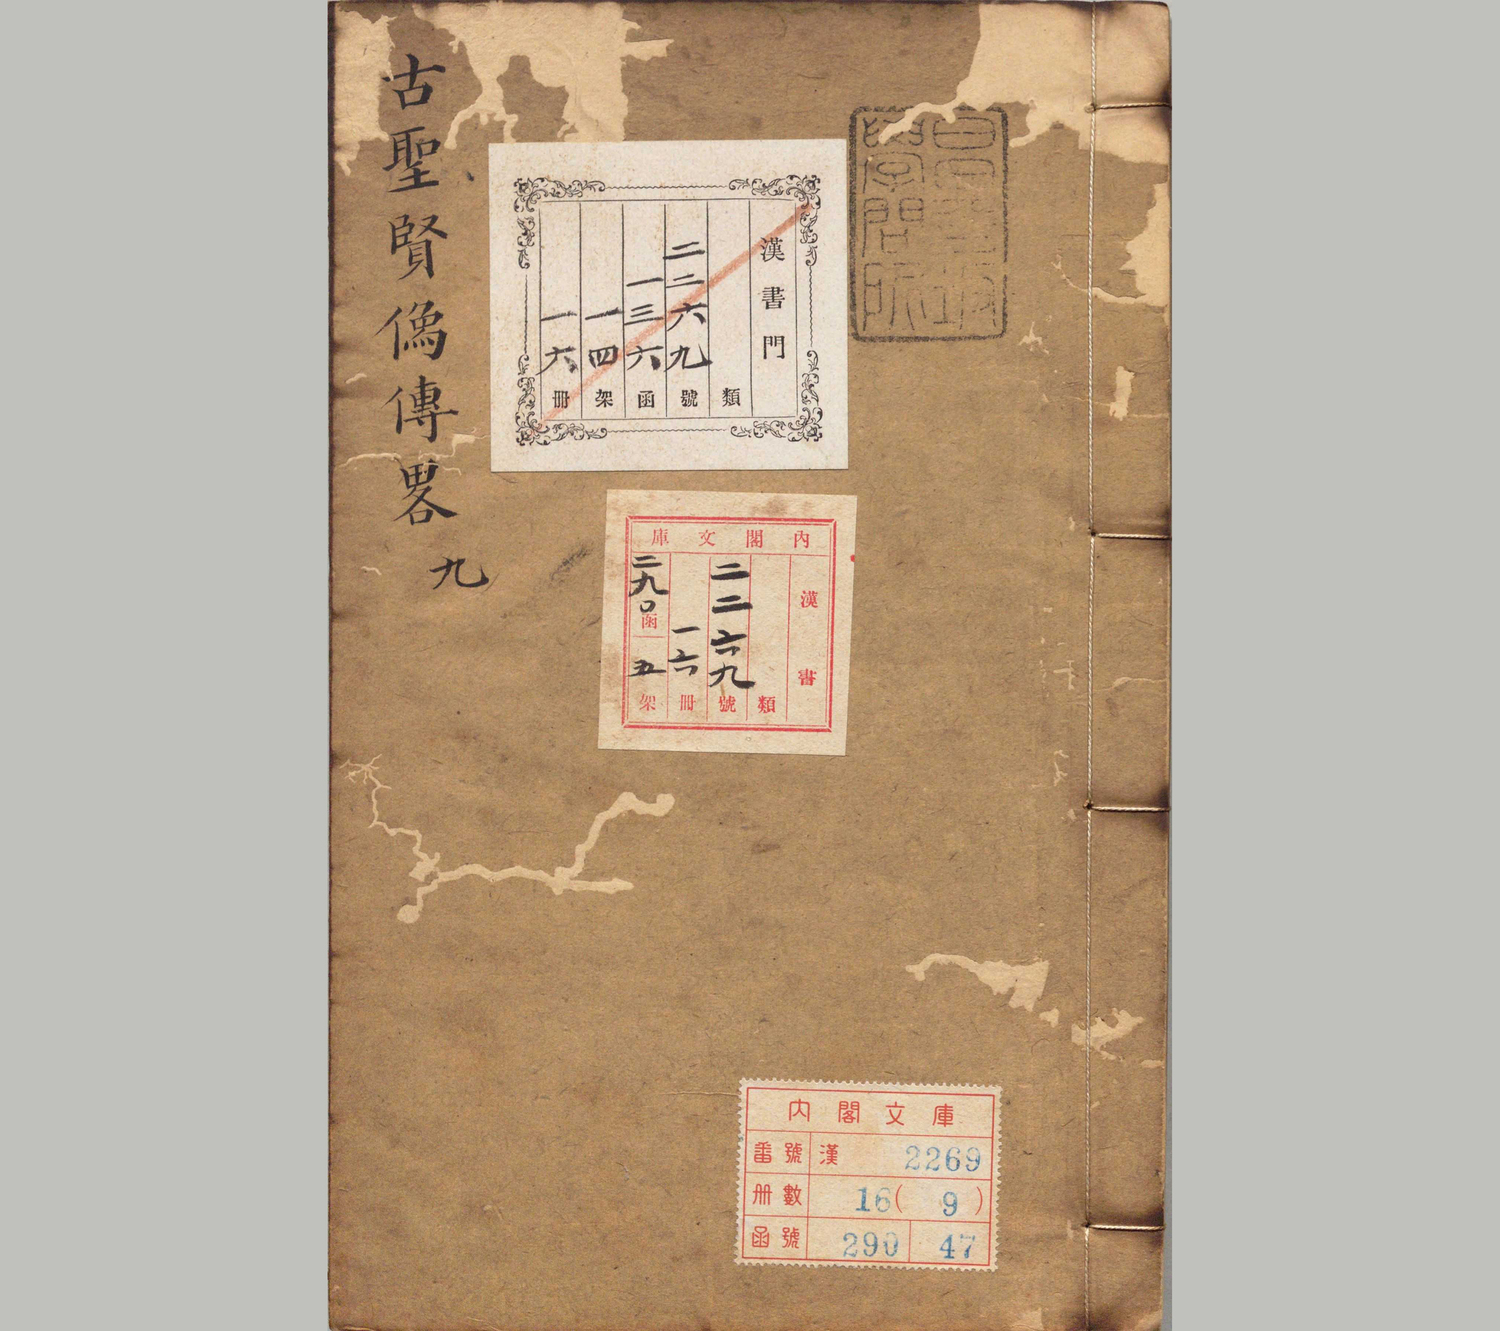 古聖賢像傳畧 九
昌平坂
學問所
漢書門
類
二二六九號
一三六函
一四架
一六冊
內閣文庫
漢書
類
二二六九號
一六冊
二九〇函
五架
內閣文庫
番號 漢 2269
冊數 16( 9 )
函號 290 47